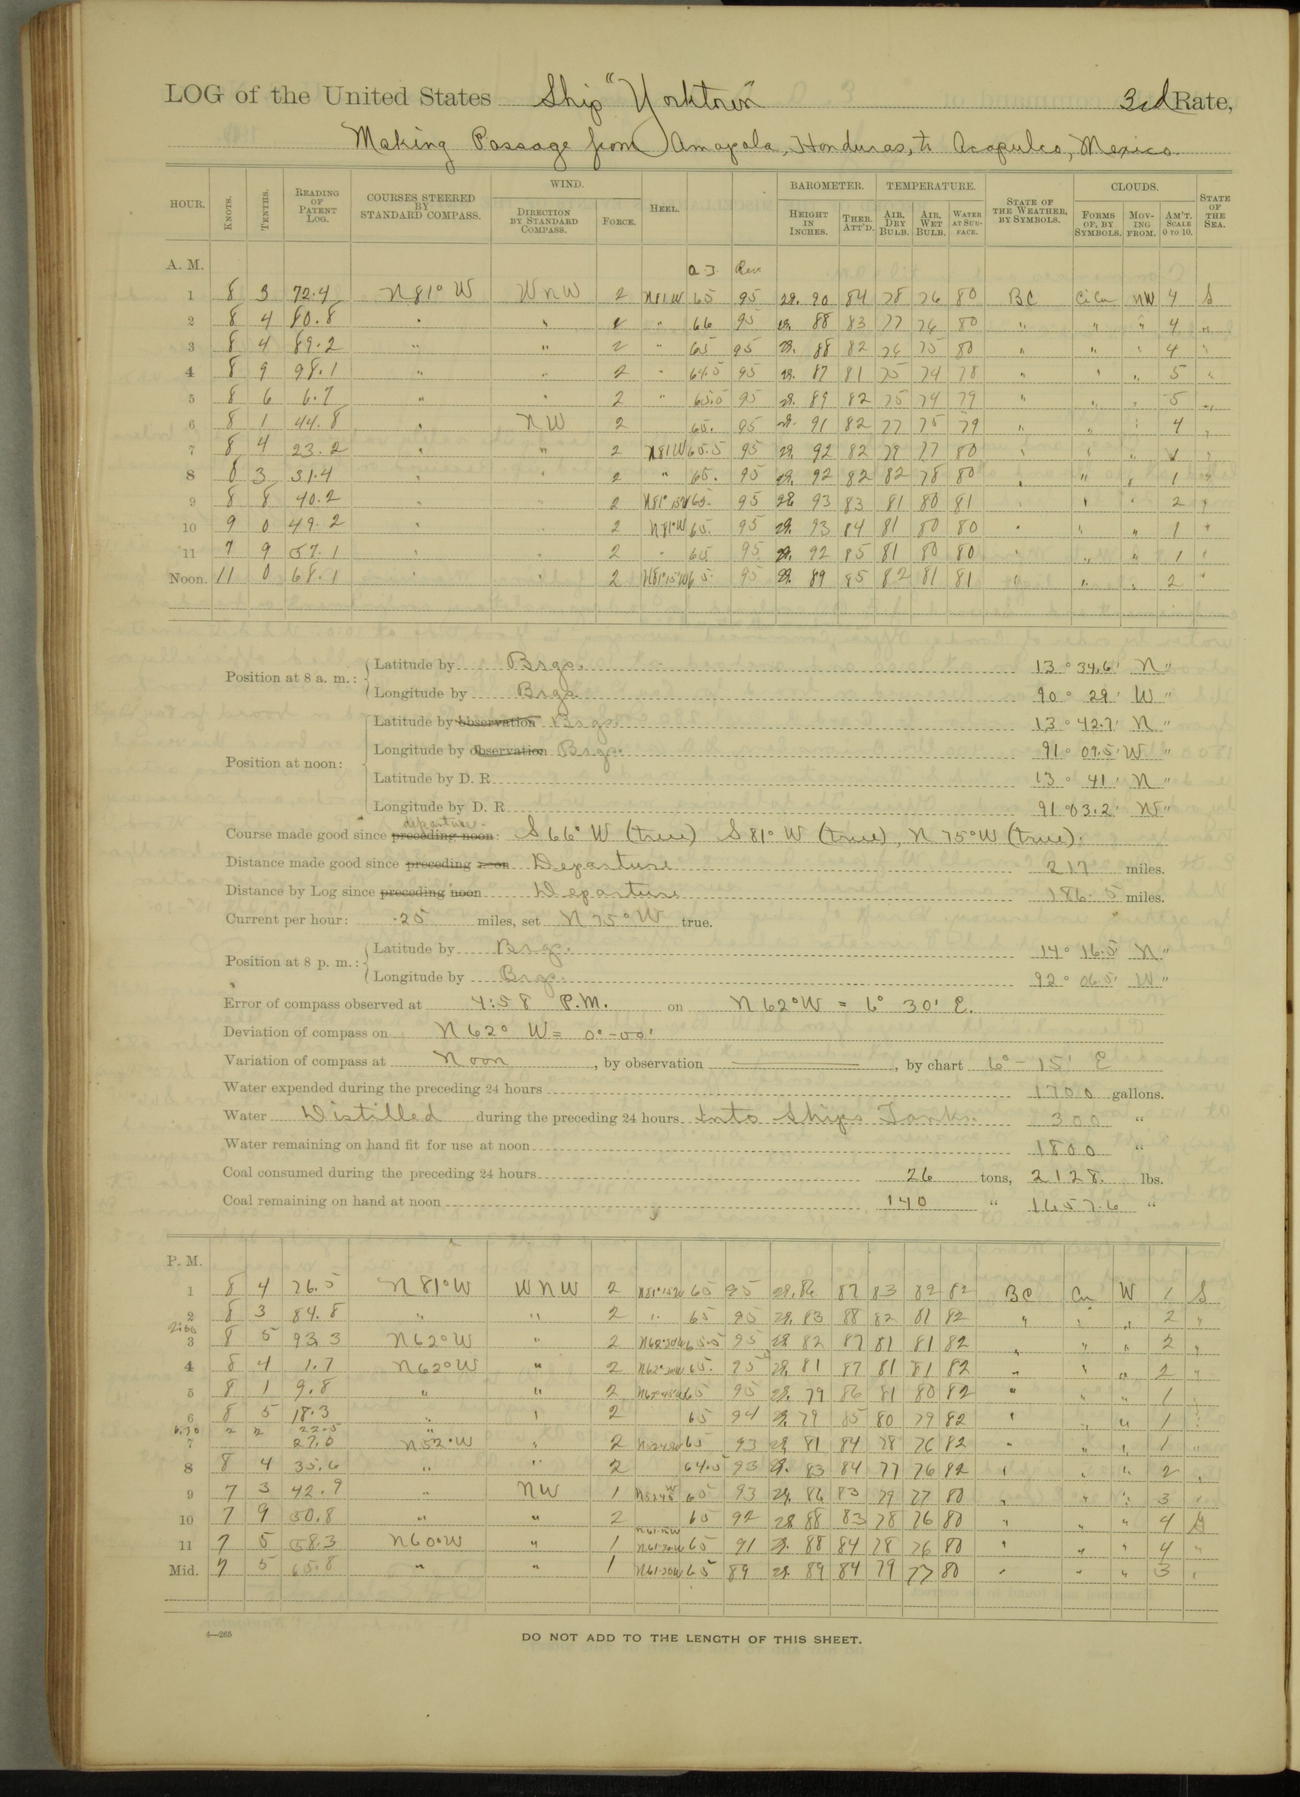 LOG of the United States Ship "Yorktown" 3rd Rate,
Making Passage from Amapala, Honduras, to Acapulco, Mexico
HOUR. KNOTS. TENTHS. READING OF PATENT LOG. COURSES STEERED BY STANDARD COMPASS. WIND. DIRECTION BY STANDARD COMPASS. FORCE. HEEL. BAROMETER. HEIGHT IN INCHES. THER. ATT'D. TEMPERATURE. AIR, DRY BULB. AIR, WET BULB. WATER AT SURFACE. STATE OF THE WEATHER, BY SYMBOLS. CLOUDS. FORMS OF, BY SYMBOLS. MOVING FROM. AM'T. SCALE 0 TO 10. STATE OF THE SEA.
A. M. Rev
1 8 3 72.4 N 81° W WNW 2 N81W 65 95 29. 90 84 78 76 80 BC Ci Cu NW 4 S
2 8 4 80.8 " " 2 " 66 95 29. 88 83 77 76 80 " " " 4 "
3 8 4 89.2 " " 2 " 65 95 29. 88 82 76 75 80 " " " 4 "
4 8 9 98.1 " " 2 " 64.5 95 29. 87 81 75 74 78 " " " 5 "
5 8 6 6.7 " " 2 " 65.5 95 29. 89 82 75 74 79 " " " 5 "
6 8 1 44.8 " NW 2 65. 95 29. 91 82 77 75 79 " " " 4 "
7 8 4 23.2 " " 2 N81W 65.5 95 29. 92 82 79 77 80 " " " "
8 8 3 31.4 " " 2 " 65. 95 29. 92 82 82 78 80 " " " 1 "
9 8 8 40.2 " " 2 N81°15W 65. 95 29 93 83 81 80 81 " " " 2 "
10 9 0 49.2 " " 2 N81°W 65. 95 29. 93 84 81 80 80 " " " 1 "
11 7 9 57.1 " " 2 " 65 95 29. 92 85 81 80 80 " " " 1 "
Noon. 11 0 68.1 " " 2 N81°15W 65. 95 29. 89 85 82 81 81 " " " 2 "
Position at 8 a. m.: Latitude by Brgs. 13° 34.6' N"
Longitude by Brgs. 90° 29' W"
Position at noon: Latitude by observation Brgs. 13° 42.7' N"
Longitude by observation Brgs. 91° 07.5' W"
Latitude by D. R. 13° 41' N"
Longitude by D. R. 91° 03.2' W"
departure
Course made good since preceding noon: S 66° W (true) S 81° W (true), N 75° W (true).
Distance made good since preceding noon Departure 217 miles.
Distance by Log since preceding noon Departure 186.5 miles.
Current per hour: .25 miles, set N 75° W true.
Position at 8 p. m.: Latitude by Brgs. 14° 16.5' N"
Longitude by Brgs. 92° 06.5' W"
Error of compass observed at 4:58 P.M. on N 62° W = 6° 30' E.
Deviation of compass on N 62° W = 0°-00'
Variation of compass at Noon, by observation ———, by chart 6° - 15' E
Water expended during the preceding 24 hours 1700 gallons.
Water Distilled during the preceding 24 hours Into Ships Tanks. 300 "
Water remaining on hand fit for use at noon 1800 "
Coal consumed during the preceding 24 hours 26 tons, 2128. lbs.
Coal remaining on hand at noon 140 " 1657.6 "
P. M.
1 8 4 76.5 N 81° W WNW 2 N81°15W 65 95 29.86 87 83 82 82 BC Cu W 1 S
2 8 3 84.8 " " 2 " 65 95 29.83 88 82 81 82 " " " 2 "
3 8 5 93.3 N 62° W " 2 65.5 95 29 82 87 81 81 82 " " " 2 "
4 8 4 1.7 N 62° W " 2 65. 95 29.81 87 81 81 82 " " " 2 "
5 8 1 9.8 " " 2 65 95 29.79 86 81 80 82 " " " 1 "
6 8 5 18.3 " " 2 65 94 29.79 85 80 79 82 " " " 1 "
6.30 2 2 22.5 "
7 27.0 N 52° W " 2 65 93 29 81 84 78 76 82 " " " 1 "
8 8 4 35.6 " " 2 64.5 93 29. 83 84 77 76 82 " " " 2 "
9 7 3 42.9 " NW 1 65 93 29. 86 83 79 77 80 " " " 3 "
10 7 9 50.8 " " 2 65 92 29 88 83 78 76 80 " " " 4 "
11 7 5 58.3 N 60° W " 1 65 91 29. 88 84 78 76 80 " " " 4 "
Mid. 7 5 65.8 " " 1 N61.30W 65 89 29. 89 84 79 77 80 " " " 3 "
4—265
DO NOT ADD TO THE LENGTH OF THIS SHEET.